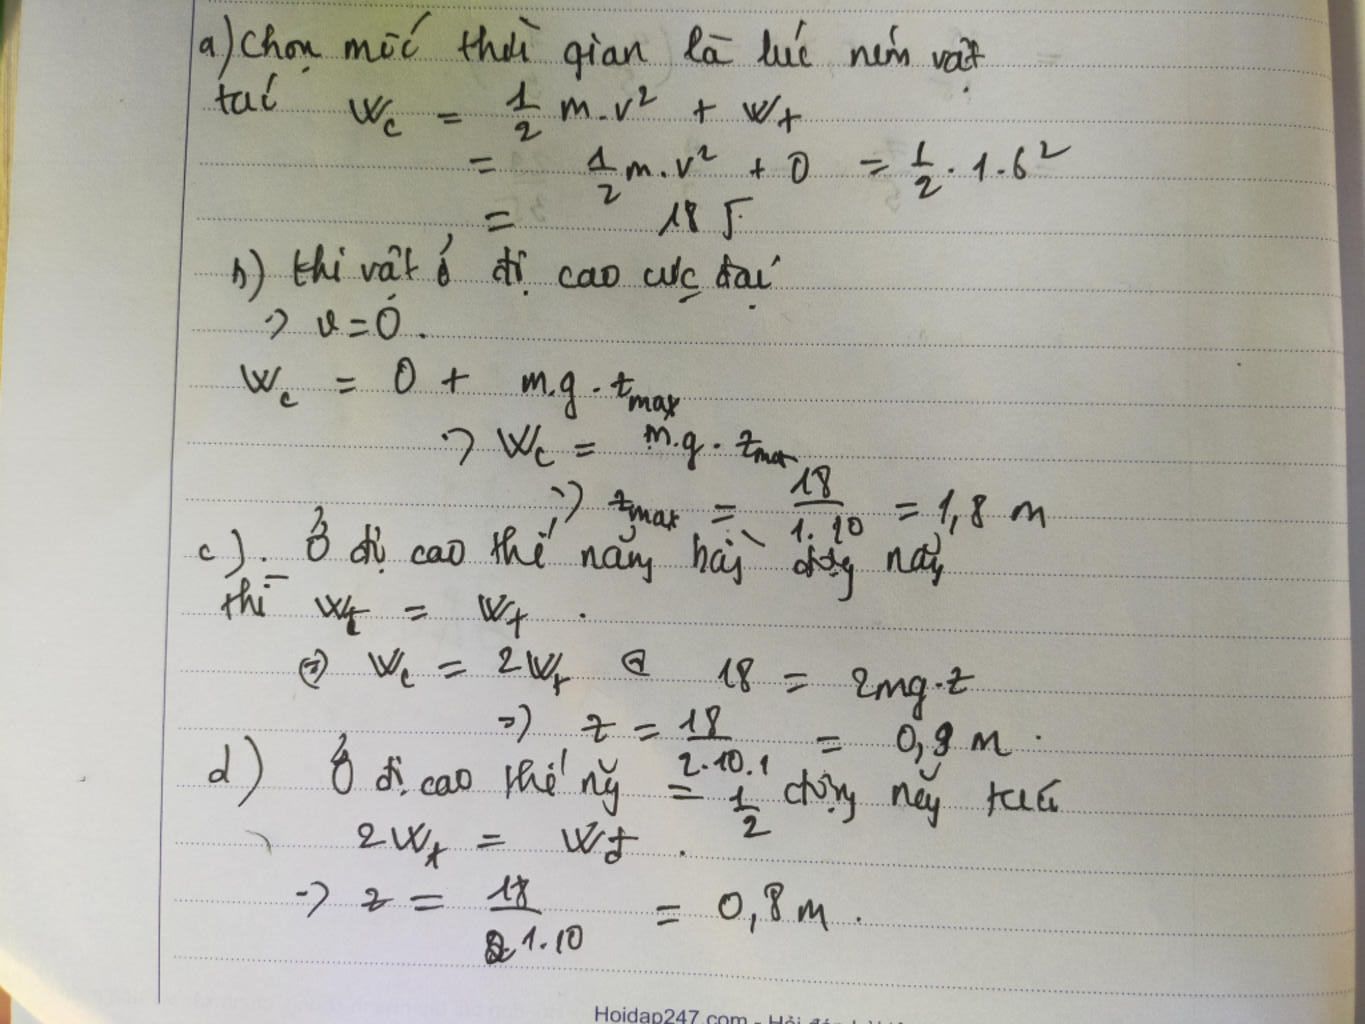 a) Chọn mốc thời gian là lúc ném vật
tại Wc = 1/2 m.v² + Wt
= 1/2 m.v² + 0 = 1/2 . 1.6²
= 18 J.
b) khi vật ở độ cao cực đại
=> v = 0.
Wc = 0 + m.g.zmax
=> Wc = m.g.zmax
=> zmax = 18/1.10 = 1,8 m
c). Ở độ cao thế năng bằng động năng
thì Wđ = Wt.
<=> Wc = 2Wt <=> 18 = 2mg.z
=> z = 18/2.10.1 = 0,9 m.
d) Ở độ cao thế năng = 1/2 động năng
2Wt = Wđ.
=> z = 18/ 1.10 = 0,8 m.
Hoidap247.com -